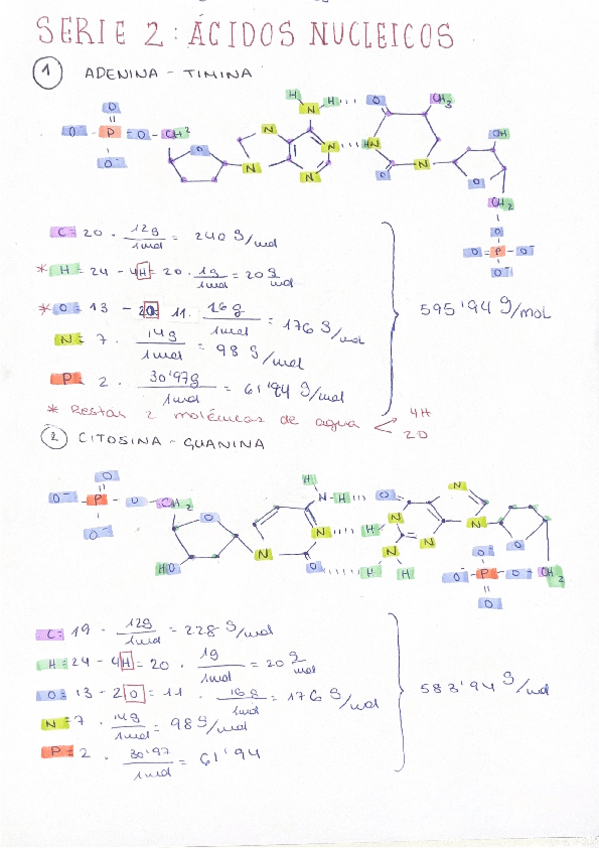 SERIE 2: ÁCIDOS NUCLEICOS
1 ADENINA - TIMINA
H
H O CH3
O N
O⁻ P O CH2 N N HN OH
O⁻ O N N O N O
CH2
O
O⁻ P O⁻
O⁻
C = 20 · 12g/1mol = 240 g/mol
* H = 24 - 4H = 20 · 1g/1mol = 20 g/mol
* O = 13 - 2O = 11 · 16g/1mol = 176 g/mol
595'94 g/mol
N = 7 · 14g/1mol = 98 g/mol
P = 2 · 30'97g/1mol = 61'94 g/mol
* Restar 2 moléculas de agua < 4H
2O
2 CITOSINA - GUANINA
H
O N-H O N
O⁻ - P - O - CH2
O⁻ O N H N N O
HO N O H N N H H
O
O⁻ - P - O - CH2
O
C = 19 · 12g/1mol = 228 g/mol
H = 24 - 4H = 20 · 1g/1mol = 20 g/mol
O = 13 - 2O = 11 · 16g/1mol = 176 g/mol
583'94 g/mol
N = 7 · 14g/1mol = 98 g/mol
P = 2 · 30'97/1mol = 61'94